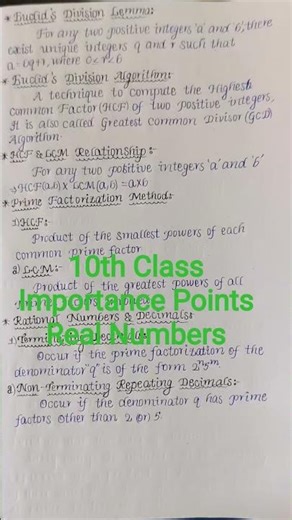 * Euclid's Division Lemma:-
For any two positive integers 'a' and 'b', there
exist unique integers q and r such that
a=bq+r, where 0≤r<b
* Euclid's Division Algorithm:-
A technique to compute the Highest
Common Factor (HCF) of two positive integers,
It is also called Greatest Common Divisor (GCD)
Algorithm.
* HCF & LCM Relationship:-
For any two positive integers 'a' and 'b'
→HCF(a,b)×LCM(a,b)=a×b
* Prime Factorization Method:-
1)HCF:-
Product of the smallest powers of each
common prime factor
2) LCM:-
10th Class
Product of the greatest powers of all
Importance Points
* Rational Numbers & Decimals:-
Real Numbers
Occur if the prime factorization of the
denominator 'q' is of the form 2ⁿ5ᵐ
2) Non-Terminating Repeating Decimals:-
Occur if the denominator q has prime
factors other than 2 or 5